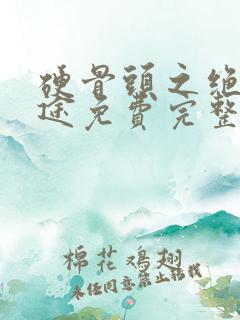 硬骨頭之絕
途免費完整
棉花鸡翅
未经同意禁止转载